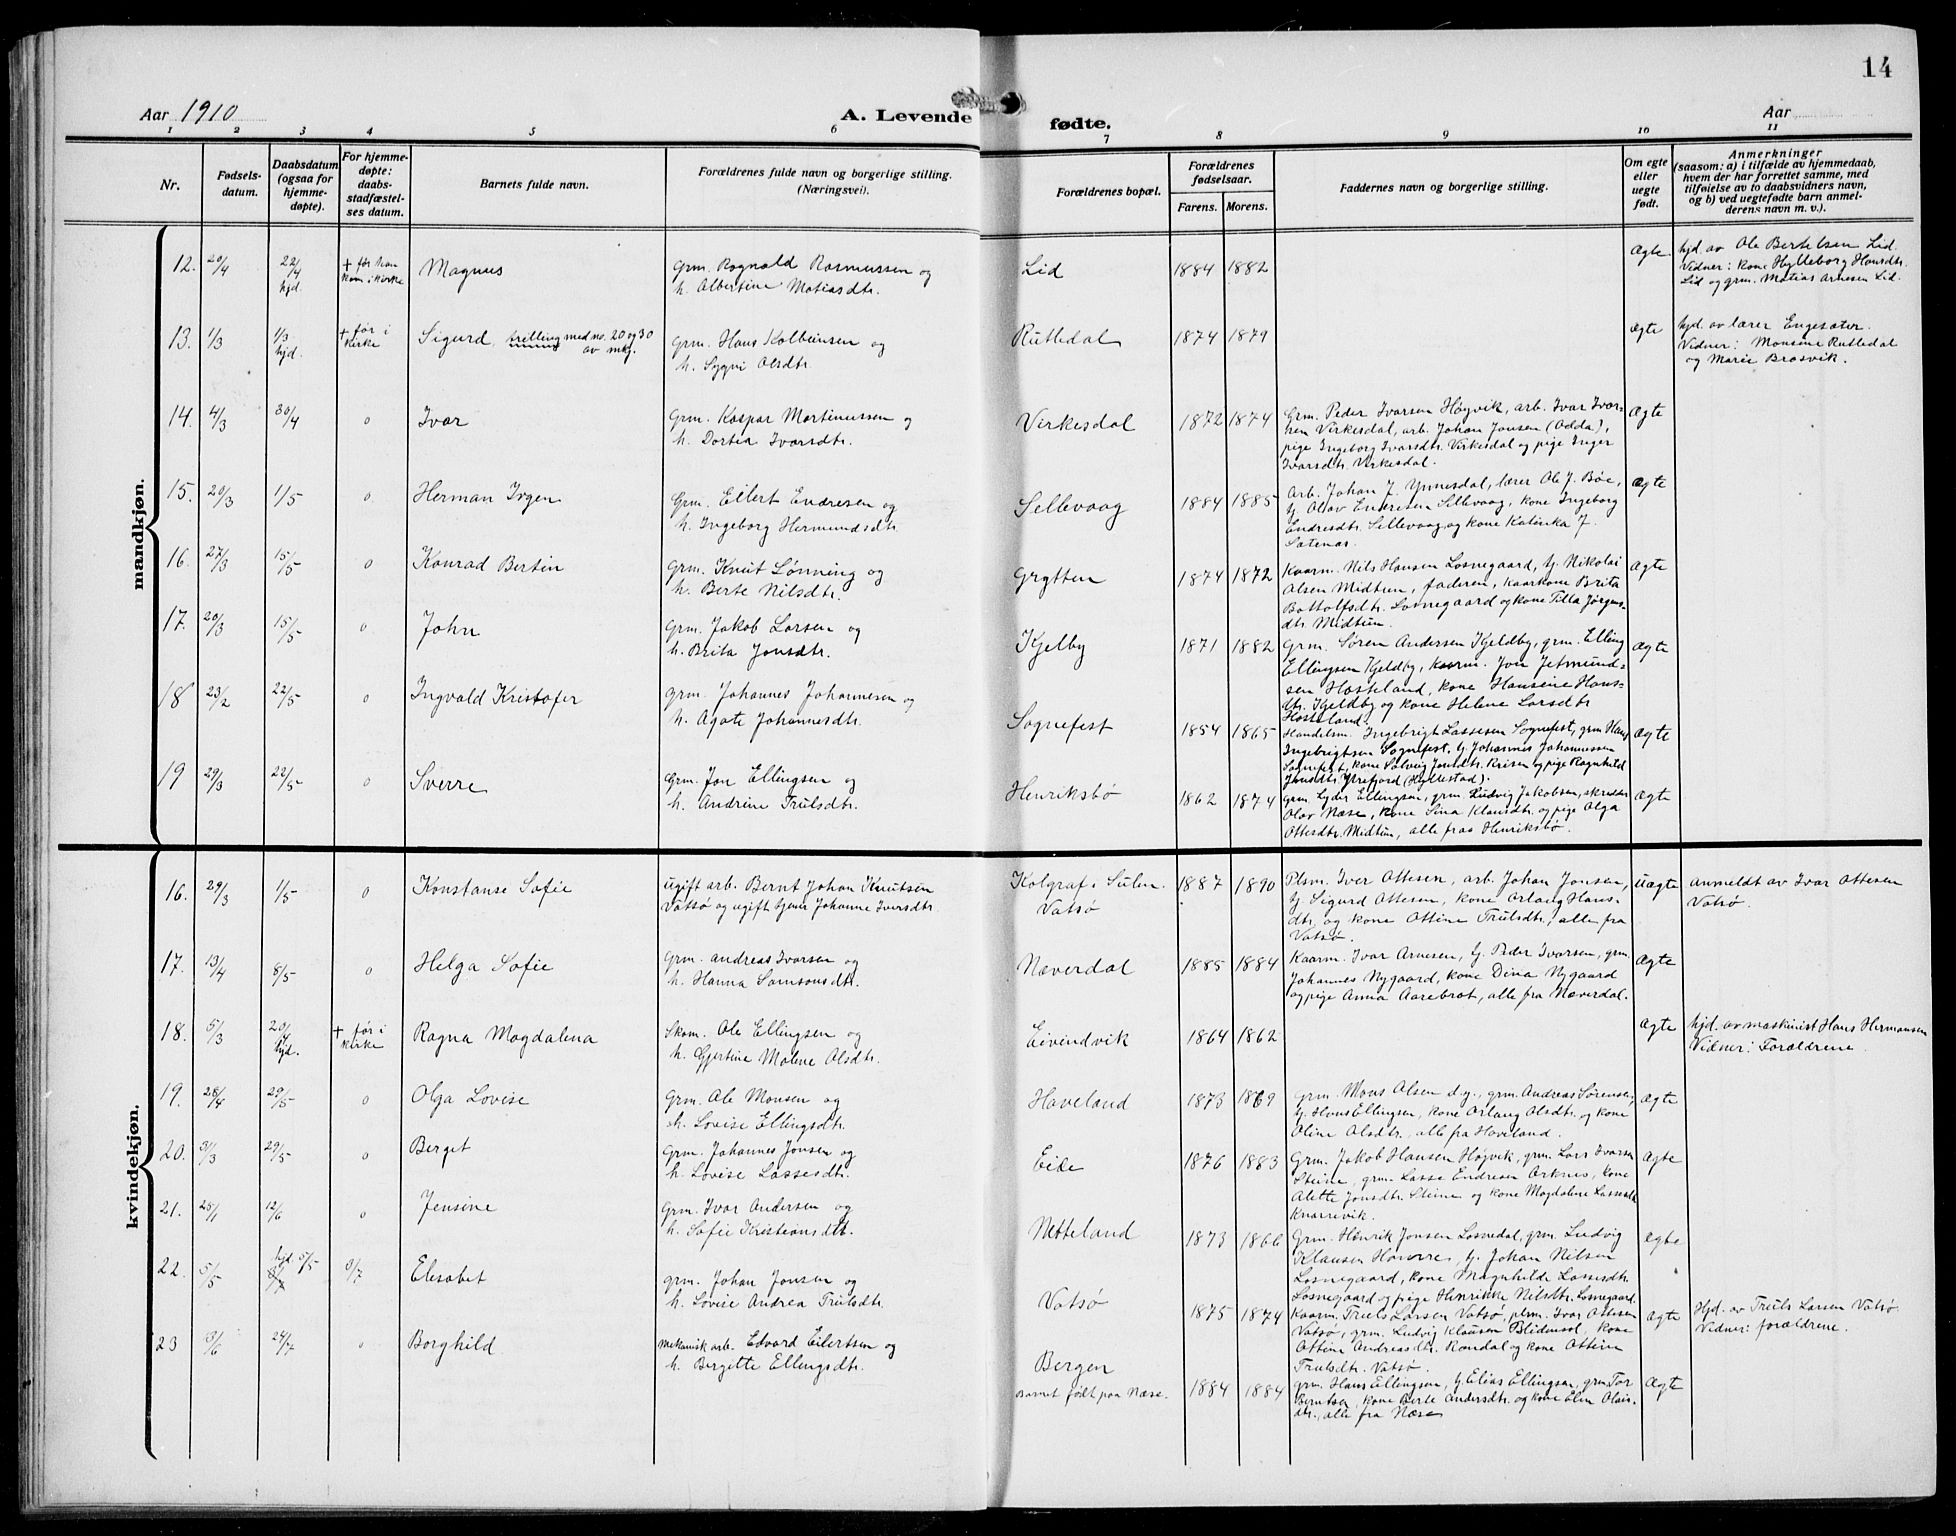 14
Aar 1910
A. Levende
fødte.
Aar
1 2 3 4 5 6 7 8 9 10 11
Nr.
Fødsels-
datum.
Daabsdatum
(ogsaa for
hjemme-
døpte).
For hjemme-
døpte:
daabs-
stadfæstel-
ses datum.
Barnets fulde navn.
Forældrenes fulde navn og borgerlige stilling.
(Næringsvei).
Forældrenes bopæl.
Forældrenes
fødselsaar.
Farens. Morens.
Faddernes navn og borgerlige stilling.
Om egte
eller
uegte
født.
Anmerkninger
(saasom: a) i tilfælde av hjemmedaab,
hvem der har forrettet samme, med
tilføielse av to daabsvidners navn,
og b) ved uegtefødte barn anmel-
derens navn m. v.).
mandkjøn.
12. 20/4 22/4 hjd. + før han kom i kirke Magnus
Grm. Rognald Rasmussen og
h. Albertine Matiasdtr.
Lid 1884 1882 Ægte
hjd. av Ole Bertelsen Lid.
Vidner: kone Hylleborg Hansdtr.
Lid og grm. Matias Arnesen Lid.
13. 1/3 1/3 hjd. + før i kirke Sigurd, trilling med no. 20 og 30
av mkj.
Grm. Hans Kolbeinsen og
h. Sygni Olsdtr.
Rutledal 1874 1879 Ægte
hjd. av lærer Engesæter.
Vidner: Monsine Rutledal
og Marie Brosvik.
14. 4/3 30/4 0 Ivar
Grm. Kaspar Martinussen og
h. Dortea Ivarsdtr.
Virkesdal 1872 1874
Grm. Peder Ivarsen Høyvik, arb. Ivar Ivar-
sen Virkesdal, arb. Johan Jonsen (Odda),
pige Ingeborg Ivarsdtr. Virkesdal og pige Inger
Ivarsdtr. Virkesdal.
Ægte
15. 20/3 1/5 0 Herman Irgen
Grm. Eilert Endresen og
h. Ingeborg Hermundsdtr.
Sellevaag 1884 1885
Arb. Johan J. Ynnesdal, lærer Ole J. Bøe,
tj. Olav Endresen Sellevaag, kone Ingeborg
Endresdtr. Sellevaag og kone Katinka J.
Ægte
16. 27/3 15/5 0 Konrad Bertin
Grm. Knut Lønning og
h. Berte Nilsdtr.
Grytten 1874 1872
Kaarm. Nils Hansen Losnegaard, tj. Nikolai
Olsen Midtun, faderen, kaarkone Brita
Bottolfsdtr. Losnegaard og kone Tilla Jørgens-
dtr. Midtun.
Ægte
17. 20/3 15/5 0 John
Grm. Jakob Larsen og
h. Brita Jonsdtr.
Kjelby 1871 1882
Grm. Søren Andersen Kjeldby, grm. Elling
Ellingsen Kjeldby, kaarm. Jon Jetmund-
sen Hosteland, kone Hansine Hans-
dtr. Kjeldby og kone Helene Larsdtr
Hosteland.
Ægte
18 23/2 22/5 0 Ingvald Kristofer
Grm. Johannes Johannesen og
h. Agate Johannesdtr.
Sognefest 1854 1865
Handelsm. Ingebrigt Lassesen Sognefest, grm Hans
Ingebrigtsen Sognefest, tj. Johannes Johannessen
Sognefest, kone Solveig Jonsdtr. Risen og pige Ragnhild
Jonsdtr. Ytrefjord (Hyllestad).
Ægte
19 29/3 22/5 0 Sverre
Grm. Jon Ellingsen og
h. Andrine Trulsdtr.
Henriksbø 1862 1874
Grm. Lyder Ellingsen, grm. Ludvig Jakobsen, skredder
Olav Næse, kone Sina Klausdtr. og pige Olga
Ottesdtr. Midtun, alle fraa Henriksbø.
Ægte
kvindekjøn.
16. 29/3 1/5 0 Konstanse Sofie
ugift arb. Bernt Johan Knutsen
Vatsø og ugift tjener Johanne Iversdtr.
Kolgraf i Sulen
Vatsø
1887 1890
Plsm. Iver Ottesen, arb. Johan Jonsen,
tj. Sigurd Ottesen, kone Orlaug Hans-
dtr. og kone Ottine Trulsdtr., alle fra
Vatsø.
Uægte
Anmeldt av Ivar Ottesen
Vatsø.
17. 13/4 8/5 0 Helga Sofie
Grm. Andreas Ivarsen og
h. Hanna Samsonsdtr.
Næverdal 1885 1884
Kaarm. Ivar Arnesen, tj. Peder Ivarsen, grm.
Johannes Nygaard, kone Dina Nygaard
og pige Anna Aarebrot, alle fra Næverdal.
Ægte
18. 5/3 20/4 hjd. + før i kirke Ragna Magdalena
Skom. Ole Ellingsen og
h. Gjertine Malene Olsdtr.
Eivindvik 1864 1862 Ægte
hjd. av maskinist Hans Hermansen
Vidner: Forældrene.
19. 26/4 29/5 0 Olga Lovise
Grm. Ole Monsen og
h. Lovise Ellingsdtr.
Haveland 1873 1869
Grm. Mons Olsen d.y., grm. Andreas Sørensen,
tj. Hans Ellingsen, kone Orlaug Olsdtr. og kone
Oline Olsdtr., alle fra Haveland.
Ægte
20. 31/3 29/5 0 Berget
Grm. Johannes Jonsen og
h. Lovise Lassesdtr.
Eide 1876 1883
Grm. Jakob Hansen Høyvik, grm. Lars Ivarsen
Steine, grm. Lasse Endresen Arknes, kone
Alette Jonsdtr. Steine og kone Magdalene Lassesdtr
Knarrevik.
Ægte
21. 25/1 12/6 0 Jensine
Grm. Ivar Andersen og
h. Sofie Kristiansdtr.
Netteland 1873 1866
Grm. Henrik Jonsen Losnedal, grm. Ludvig
Klausen Haverre, tj. Johan Nilsen
Losnegaard, kone Magnhilde Lassesdtr.
Losnegaard og pige Henrikke Nilsdtr. Losnegaard.
Ægte
22. 5/5 hjd. 5/5 3/7 Elisabet
Grm. Johan Jonsen og
h. Lovise Andrea Trulsdtr.
Vatsø 1875 1874
Kaarm. Truls Larsen Vatsø, plsm. Ivar Ottesen
Vatsø, grm. Ludvig Klausen Blidensol, kone
Ottine Andreasdtr. Randal og kone Ottine
Trulsdtr. Vatsø.
Ægte
Hjd. av Truls Larsen Vatsø.
Vidner: forældrene.
23 3/6 24/7 0 Borghild
Mekanisk arb. Edvard Eilertsen og
h. Bergitte Ellingsdtr.
Bergen
barnet født paa Næse.
1884 1884
Grm. Hans Ellingsen, tj. Elias Ellingsen, grm. Tor
Berntsen, kone Berte Andersdtr. og kone Elen Olais-
dtr., alle fra Næse
Ægte